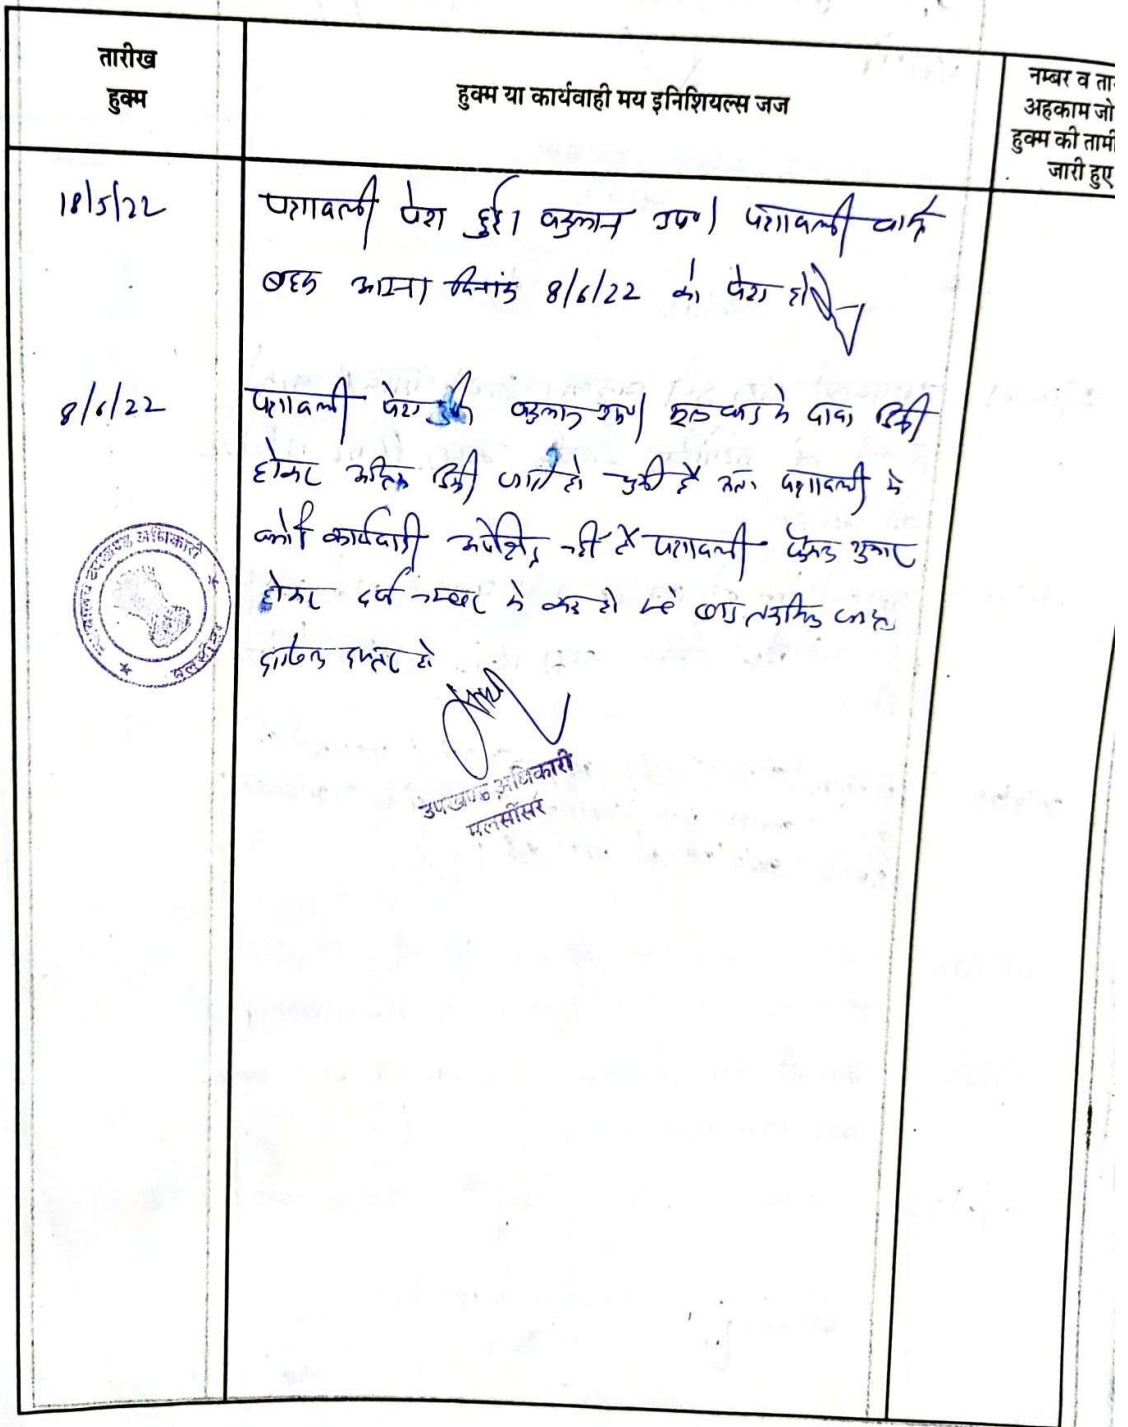 तारीख
हुक्म
हुक्म या कार्यवाही मय इनिशियल्स जज
नम्बर व ता
अहकाम जो
हुक्म की तामी
जारी हुए
18/5/22
पत्रावली पेश हुई। वकुलान उप०। पत्रावली वास्ते
बहस आइन्दा दिनांक 8/6/22 को पेश होवे
8/6/22
पत्रावली पेश हुई वकुलान उप०। मूल वाद में दावा डिक्री
होकर अंतिम डिक्री जारी हो चुकी है अतः पत्रावली में
कोई कार्यवाही अपेक्षित नहीं है पत्रावली फैसल शुमार
होकर दर्ज नम्बर से कम हो बाद तकमील
दाखिल दफ्तर हो
न्यायालय उपखण्ड अधिकारी
मलसीसर
उपखण्ड अधिकारी
मलसीसर